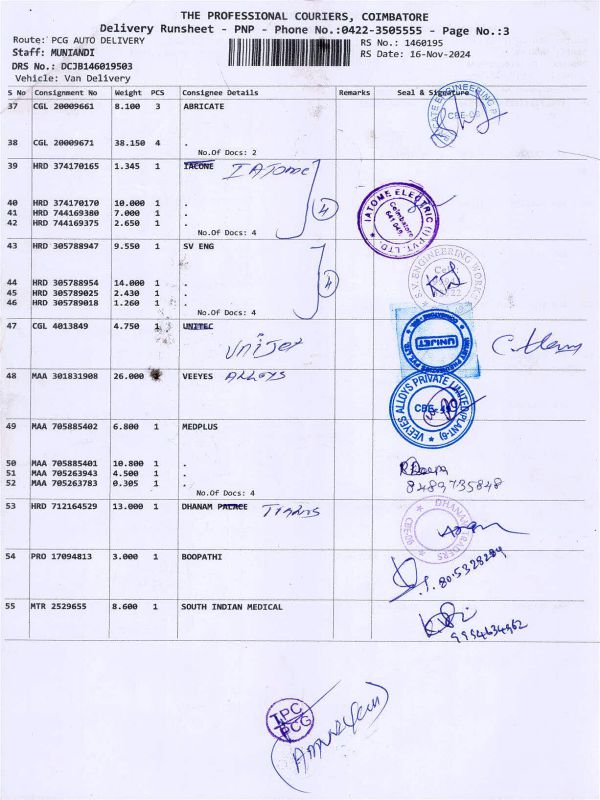 THE PROFESSIONAL COURIERS, COIMBATORE
Delivery Runsheet - PNP - Phone No.:0422-3505555 - Page No.:3
Route: PCG AUTO DELIVERY
RS No.: 1460195
Staff: MUNIANDI
RS Date: 16-Nov-2024
DRS No.: DCJB146019503
Vehicle: Van Delivery
S No Consignment No Weight PCS Consignee Details Remarks Seal & Signature
37 CGL 20009661 8.100 3 ABRICATE
38 CGL 20009671 38.150 4 .
No.Of Docs: 2
39 HRD 374170165 1.345 1 IACONE IATOME
40 HRD 374170170 10.000 1 .
41 HRD 744169380 7.000 1 .
42 HRD 744169375 2.650 1 .
No.Of Docs: 4
4
IATOME ELECTRIC (I) PVT. LTD.
Coimbatore
641 048
43 HRD 305788947 9.550 1 SV ENG
44 HRD 305788954 14.000 1 .
45 HRD 305789025 2.430 1 .
46 HRD 305789018 1.260 1 .
No.Of Docs: 4
4
S.V. ENGINEERING WORKS
47 CGL 4013849 4.750 1 UNITEC
UNIJET
UNIJET
48 MAA 301831908 26.000 VEEYES ALLOYS
VEEYES ALLOYS PRIVATE LIMITED
49 MAA 705885402 6.800 1 MEDPLUS
50 MAA 705885401 10.800 1 .
51 MAA 705263943 4.500 1 .
52 MAA 705263783 0.305 1 .
No.Of Docs: 4
8489735848
53 HRD 712164529 13.000 1 DHANAM PAERCE
DHANAM TRADERS
54 PRO 17094813 3.000 1 BOOPATHI
55 MTR 2529655 8.600 1 SOUTH INDIAN MEDICAL
9994634962
TPC
PCG